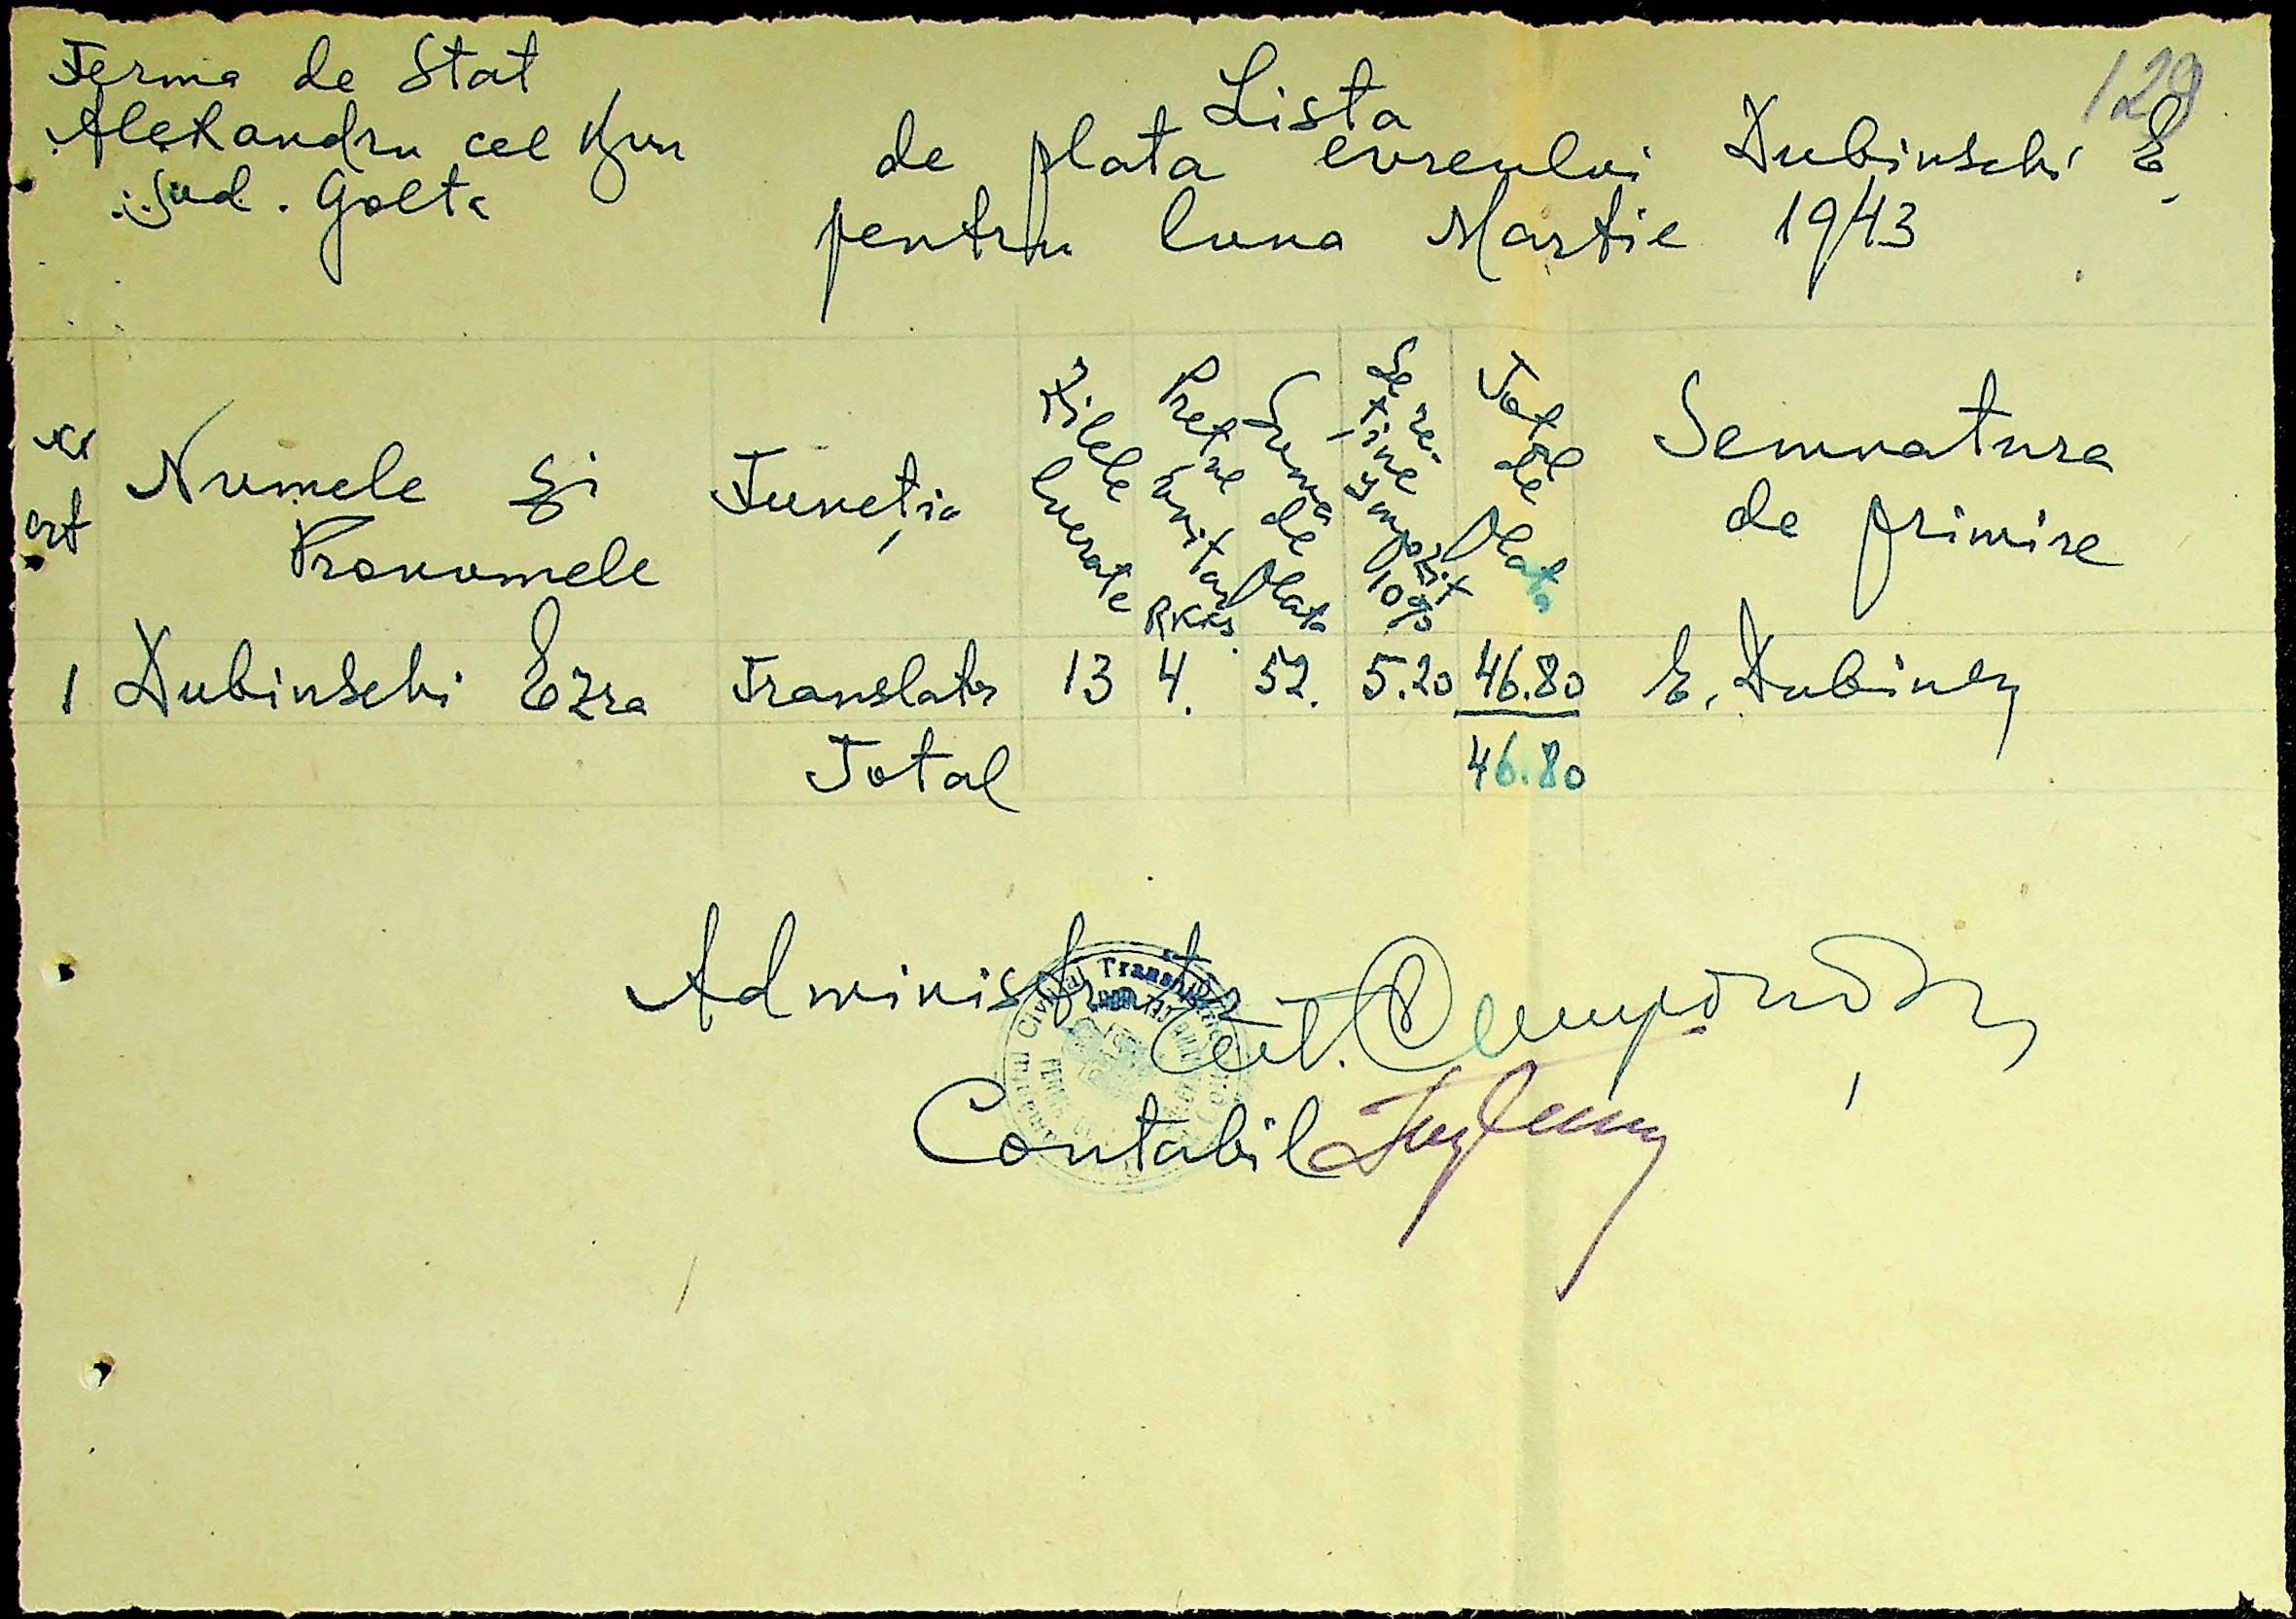 129
Ferma de Stat
Alexandru cel Bun
Jud. Golta
Lista
de plata evreului Dubinschi E.
pentru luna Martie 1943
Nr crt
Numele și Pronumele
Funcția
Zilele lucrate
Pretul unitar RKKS
Suma de plata
Se retine impozit 10%
Total de plata
Semnatura de primire
1 Dubinschi Ezra Translator 13 4. 52. 5.20 46.80 E. Dubinsky
Total 46.80
Administrator
Contabil